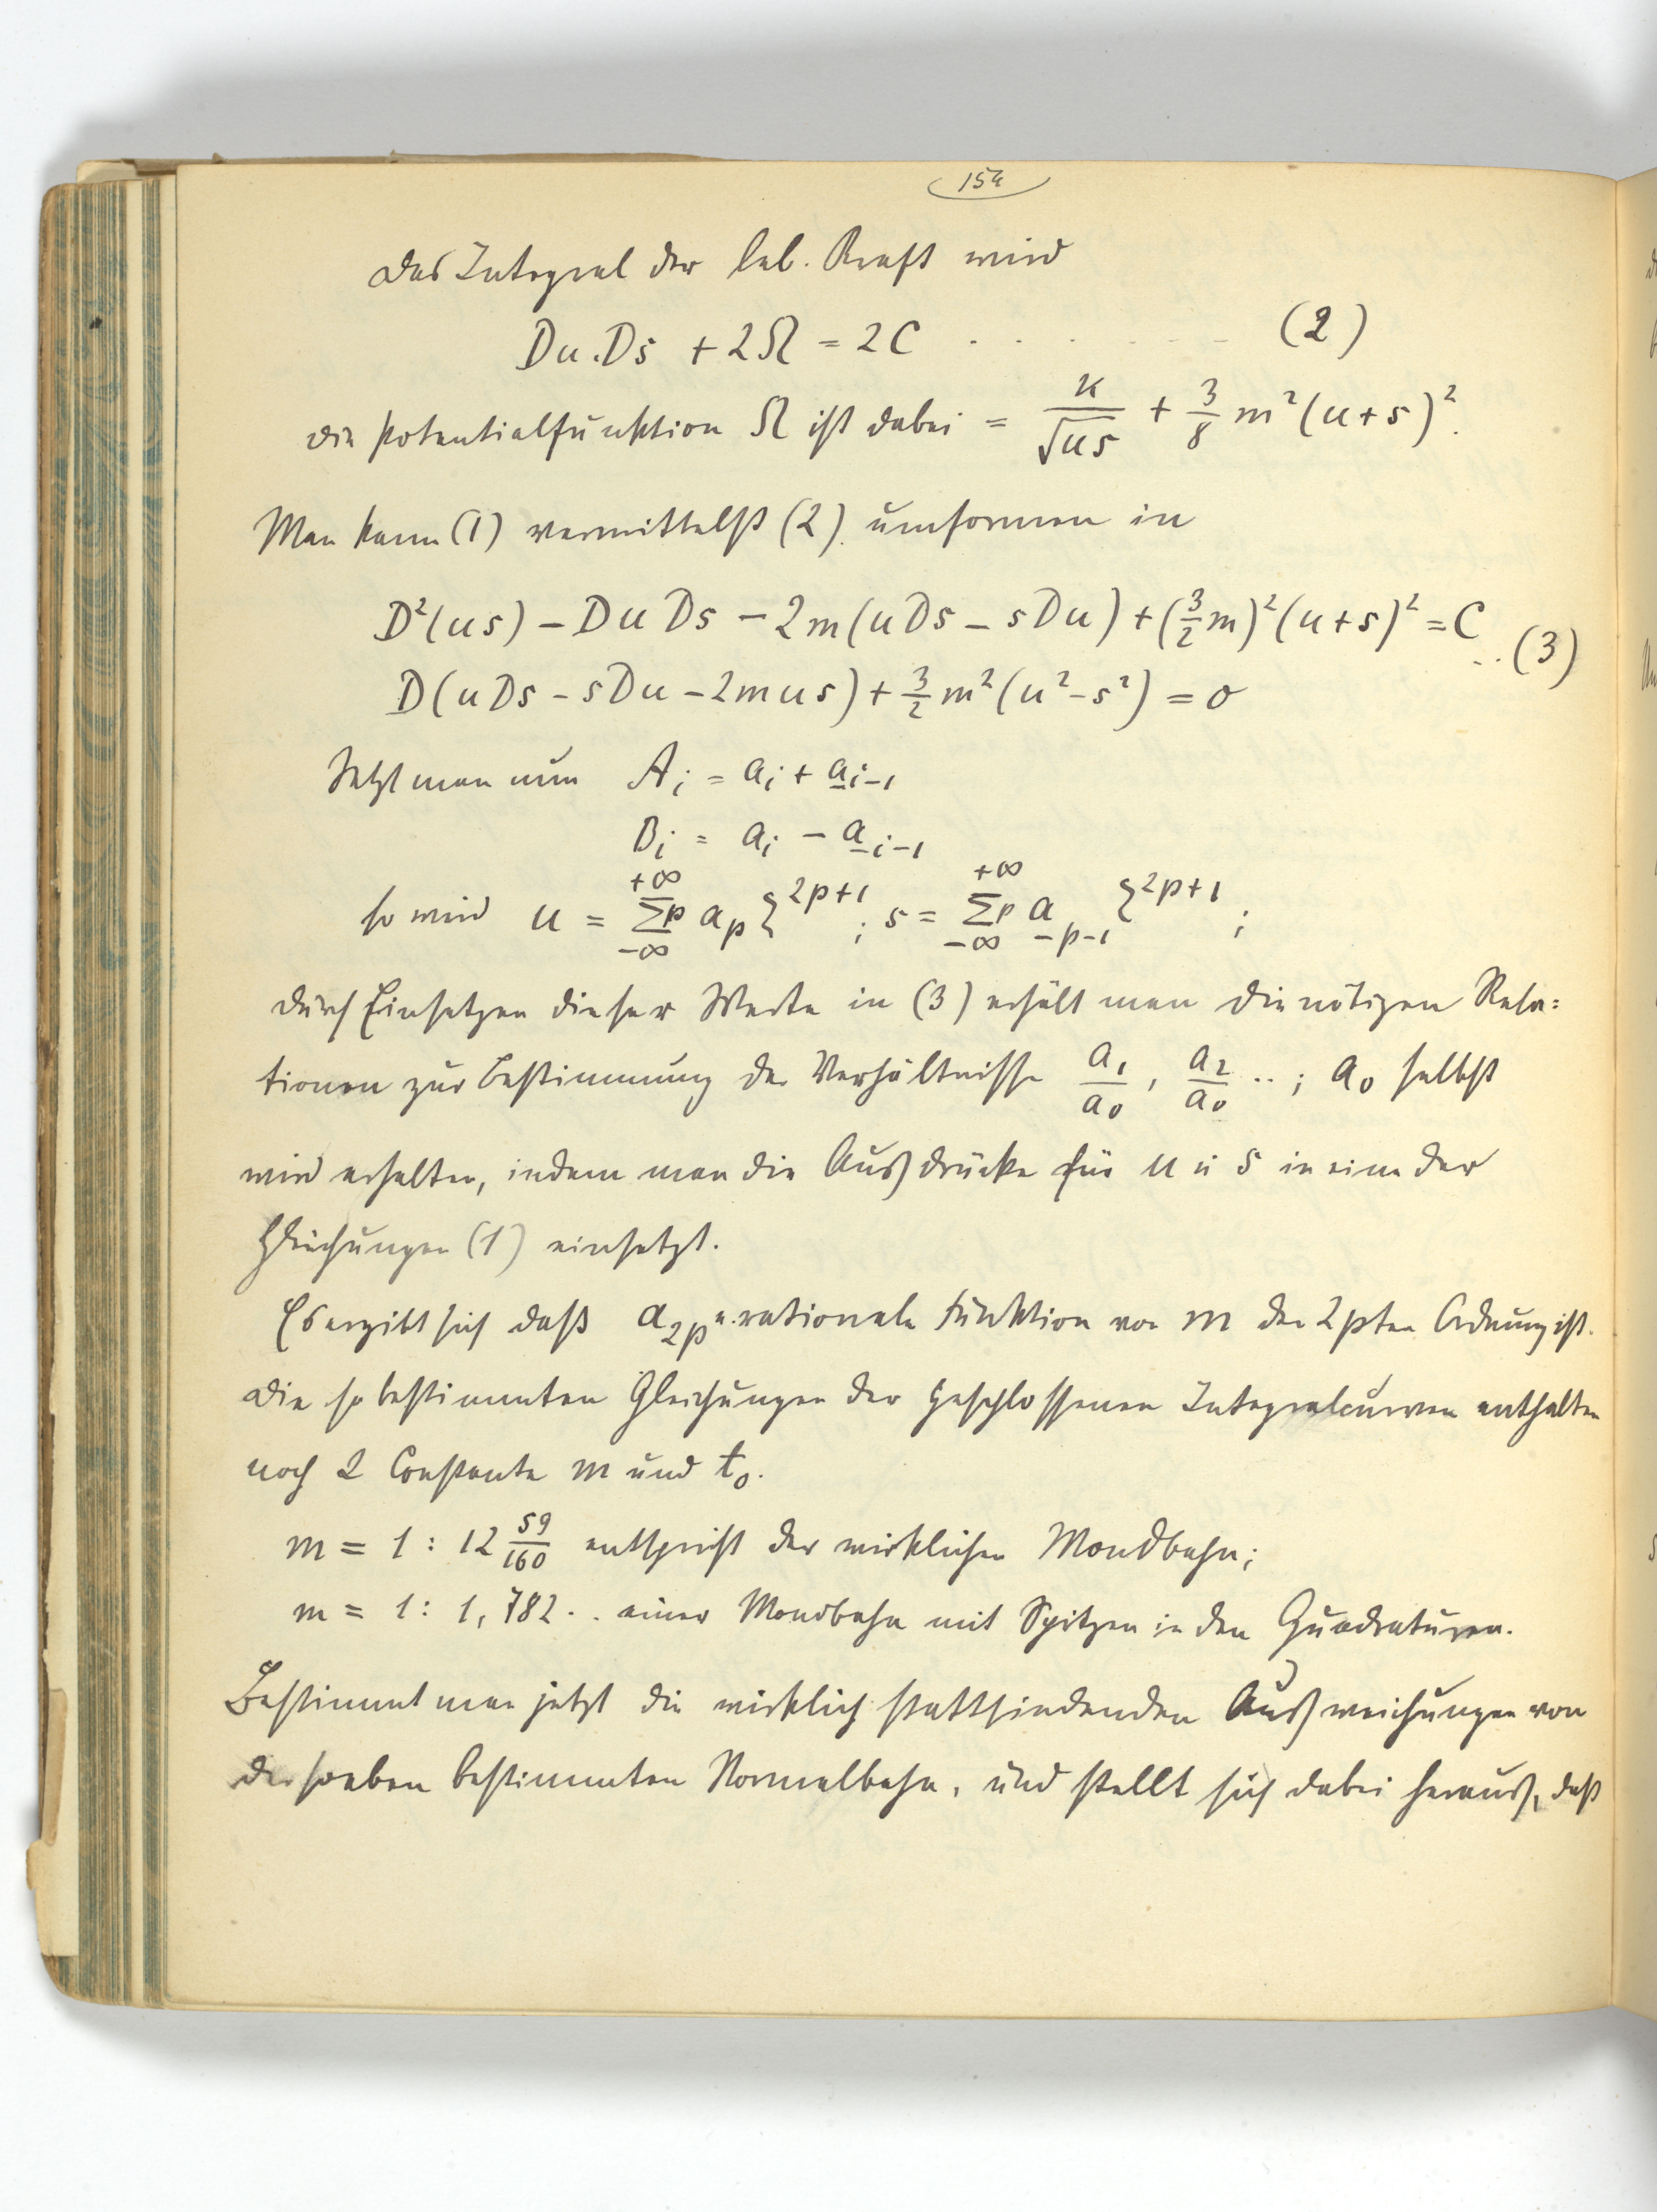 154
Das Integral der leb. Kraft wird
Du.Ds + 2Ω = 2C . . . . . . . (2)
Die Potentialfunktion Ω ist dabei = κ/√us + 3/8 m²(u+s)².
Man kann (1) vermittelst (2) umformen in
D²(us) − Du Ds − 2m(uDs − sDu) + (3/2 m)²(u+s)² = C
D(uDs − sDu − 2mus) + 3/2 m²(u²−s²) = 0 ..(3)
Setzt man nun A_i = a_i + a_{-i-1}
B_i = a_i − a_{-i-1}
so wird u = Σp_{-∞}^{+∞} a_p ζ^{2p+1}; s = Σp_{-∞}^{+∞} a_{-p-1} ζ^{2p+1};
durch Einsetzen dieser Werte in (3) erhält man die nötigen Rela=
tionen zur Bestimmung der Verhältnisse a_1/a_0, a_2/a_0 ..; a_0 selbst
wird erhalten, indem man die Ausdrücke für u u s in eine der
Gleichungen (1) einsetzt.
Es ergibt sich daß a_{2p} e. rationale Funktion von m der 2pten Ordnung ist.
Die so bestimmten Gleichungen der geschlossenen Integralcurven enthalten
noch 2 Constante m und t_0.
m = 1 : 12 59/160 entspricht der wirklichen Mondbahn;
m = 1 : 1,782.. einer Mondbahn mit Spitzen in den Quadraturen.
Bestimmt man jetzt die wirklich stattfindenden Ausweichungen von
der soeben bestimmten Normalbahn, und stellt sich dabei heraus, daß